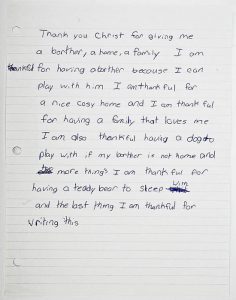 Thank you Christ for giving me
a borther, a home, a family I am
thankful for having a borther because I can
play with him I am thankful for
a nice cosy home and I am thankful
for having a family that loves me
I am also thankful having a dog to
play with if my borther is not home and
more things I am thankful for
having a teddy bear to sleep wim
and the last thing I am thankful for
writing this